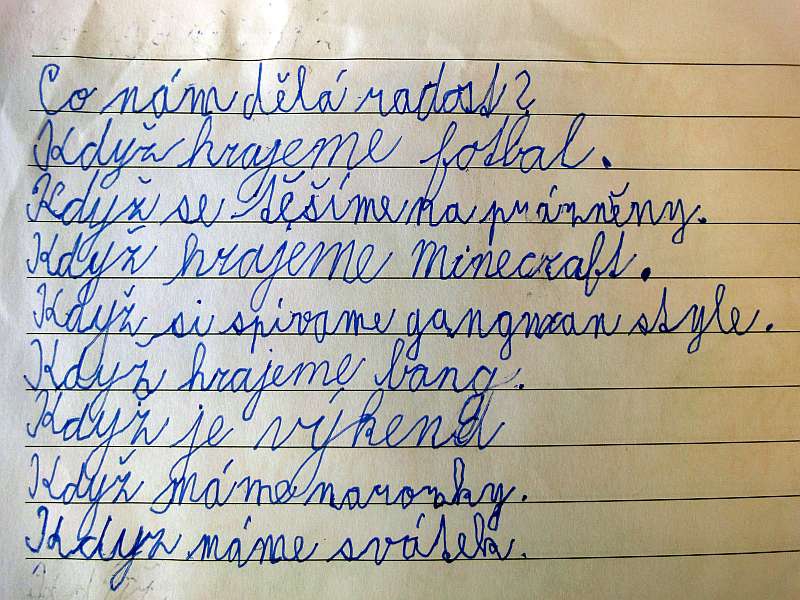 Co nám dělá radost?
Když hrajeme fotbal.
Když se těšíme na prázněny.
Když hrajeme minecraft.
Když si spívame gangnxan style.
Když hrajeme bang.
Když je výkend
Když máme narozky.
Kdyz máme svátek.